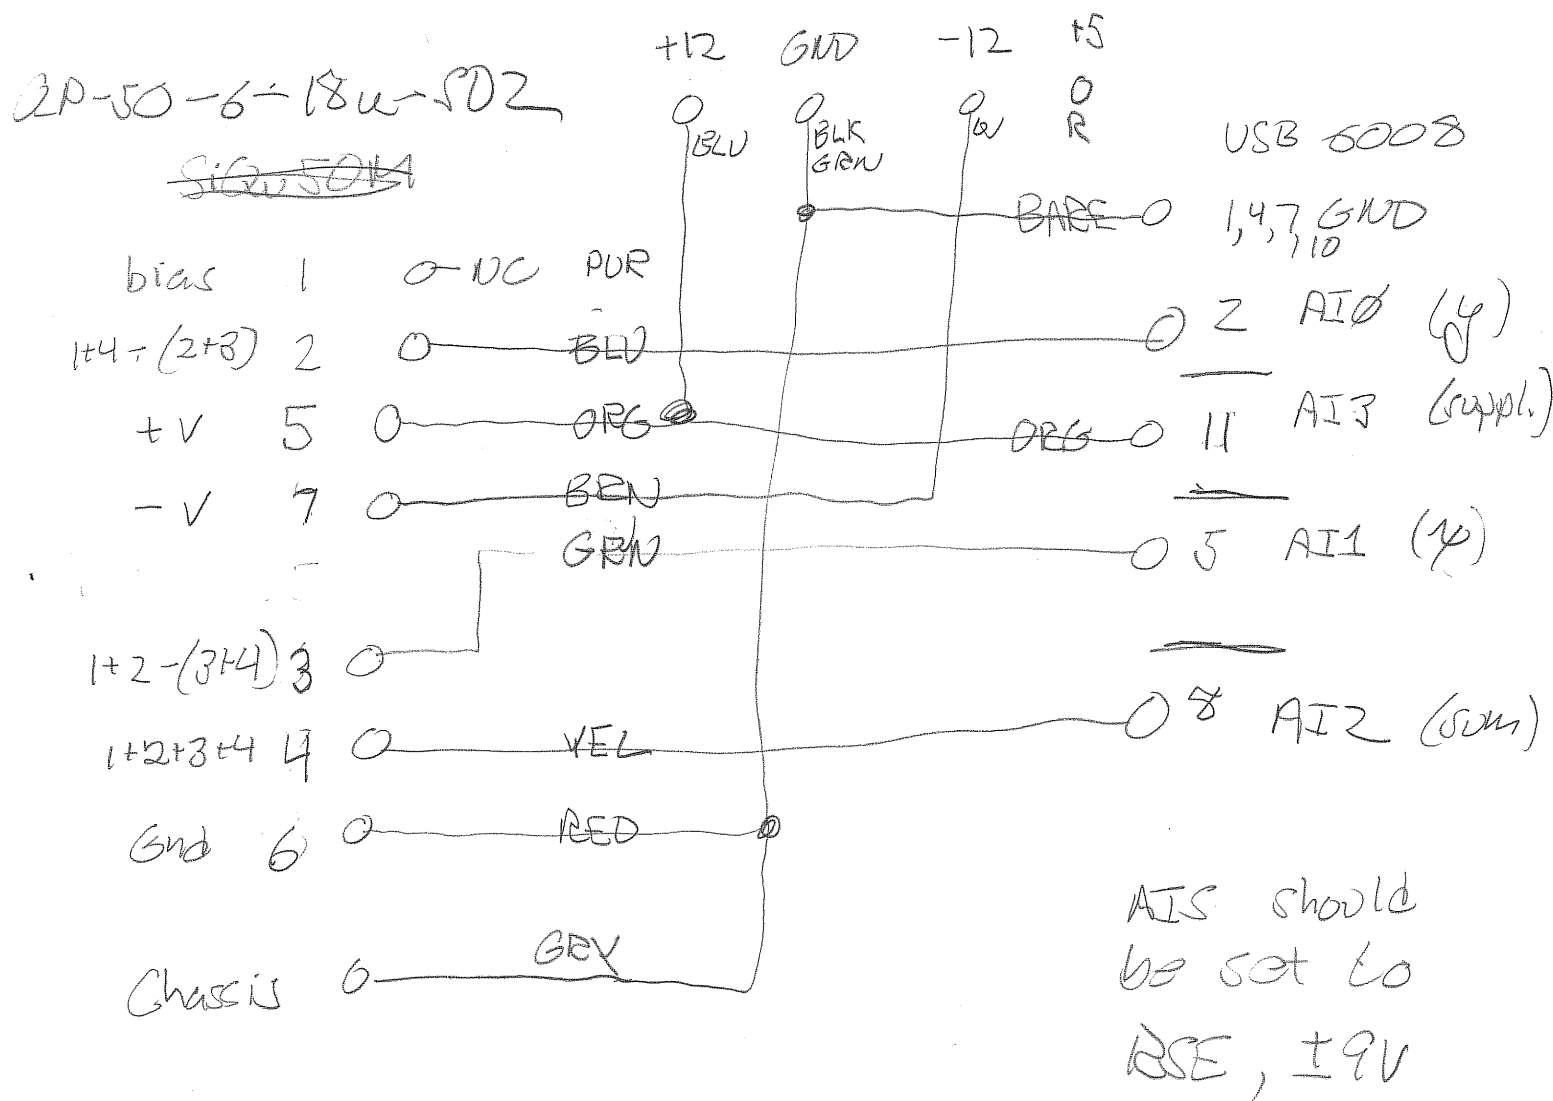 +12 GND -12 +5
QP-50-6-18u-SD2
BLU BLK W O
GRN R
USB 6008
BARE 1,4,7,10 GND
bias 1 NC PUR
1+4-(2+3) 2 BLU 2 AI0 (y)
+V 5 ORG ORG 11 AI3 (suppl.)
-V 7 BRN
GRN 5 AI1
1+2-(3+4) 3
1+2+3+4 4 YEL 8 AI2 (sum)
Gnd 6 RED
Chassis GRY
AIS should
be set to
RSE, ±9V